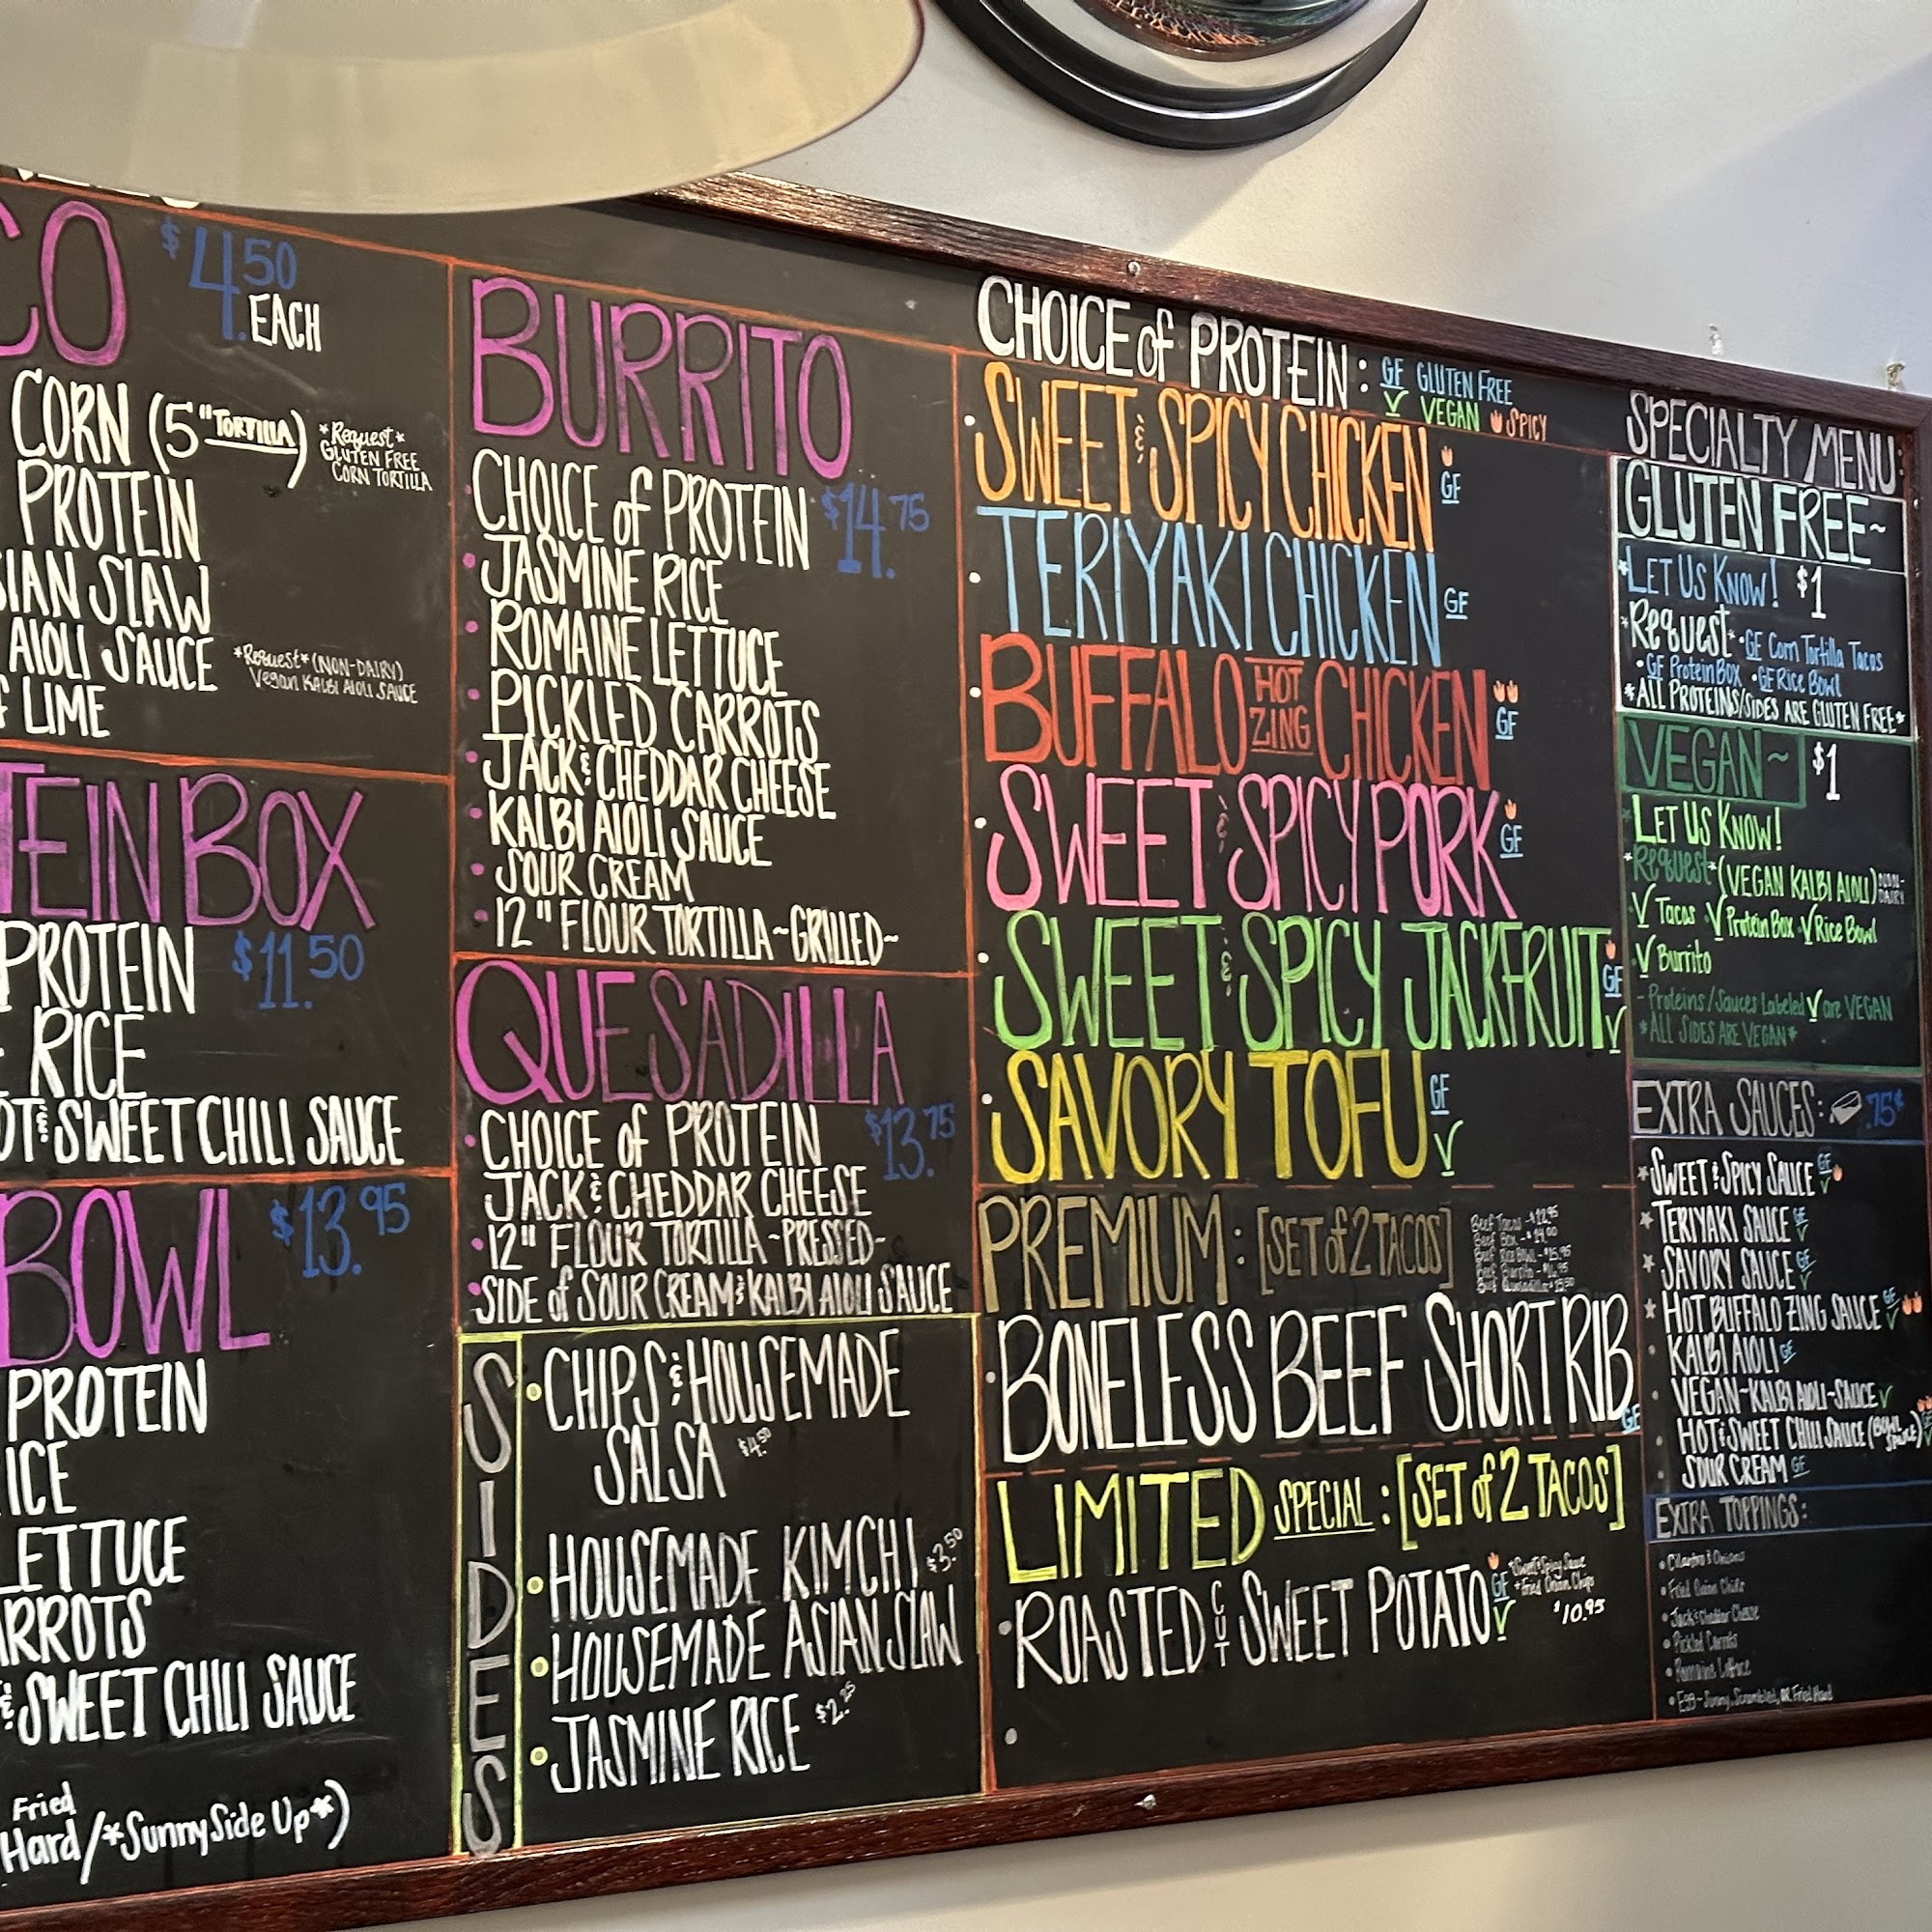 CO $4.50
EACH
CORN (5" TORTILLA) *Request*
GLUTEN FREE
CORN TORTILLA
PROTEIN
SIAN SLAW
AIOLI SAUCE *Request* (NON-DAIRY)
VEGAN KALBI AIOLI SAUCE
F LIME
TEIN BOX
PROTEIN $11.50
E RICE
OT & SWEET CHILI SAUCE
BOWL $13.95
PROTEIN
ICE
LETTUCE
ARROTS
& SWEET CHILI SAUCE
Fried
Hard/*Sunny Side Up*)
BURRITO
CHOICE of PROTEIN $14.75
• JASMINE RICE
• ROMAINE LETTUCE
• PICKLED CARROTS
• JACK & CHEDDAR CHEESE
• KALBI AIOLI SAUCE
• SOUR CREAM
• 12" FLOUR TORTILLA ~GRILLED~
QUESADILLA
• CHOICE of PROTEIN $13.75
JACK & CHEDDAR CHEESE
• 12" FLOUR TORTILLA ~PRESSED~
• SIDE of SOUR CREAM & KALBI AIOLI SAUCE
SIDES
• CHIPS & HOUSEMADE
SALSA $4.50
• HOUSEMADE KIMCHI $3.50
• HOUSEMADE ASIAN SLAW
• JASMINE RICE $2.25
CHOICE of PROTEIN: GF GLUTEN FREE
V VEGAN SPICY
• SWEET & SPICY CHICKEN GF
• TERIYAKI CHICKEN GF
• BUFFALO HOT ZING CHICKEN GF
• SWEET & SPICY PORK GF
• SWEET & SPICY JACKFRUIT GF V
• SAVORY TOFU GF V
PREMIUM: [SET of 2 TACOS]
• BONELESS BEEF SHORT RIB GF
LIMITED SPECIAL: [SET of 2 TACOS]
• ROASTED CUT SWEET POTATO GF V *Sweet & Spicy Sauce
+Fried Onion Chips
$10.95
SPECIALTY MENU:
GLUTEN FREE~
*LET US KNOW! $1
*Request* • GF Corn Tortilla Tacos
• GF Protein Box • GF Rice Bowl
*ALL PROTEINS/SIDES ARE GLUTEN FREE*
VEGAN~ $1
*LET US KNOW!
*Request* (VEGAN KALBI AIOLI) NON-DAIRY
V Tacos V Protein Box V Rice Bowl
V Burrito
- Proteins/Sauces Labeled V are VEGAN
*ALL SIDES ARE VEGAN*
EXTRA SAUCES: .75¢
* SWEET & SPICY SAUCE GF V
* TERIYAKI SAUCE GF V
* SAVORY SAUCE GF V
* HOT BUFFALO ZING SAUCE GF V
• KALBI AIOLI GF
• VEGAN~KALBI AIOLI~SAUCE V
• HOT & SWEET CHILI SAUCE (BOWL SAUCE) V
• SOUR CREAM GF
EXTRA TOPPINGS:
• Cilantro & Onions
• Fried Onion Chips
• Jack & Cheddar Cheese
• Pickled Carrots
• Romaine Lettuce
• Egg~Sunny, Scrambled, OR Fried Hard